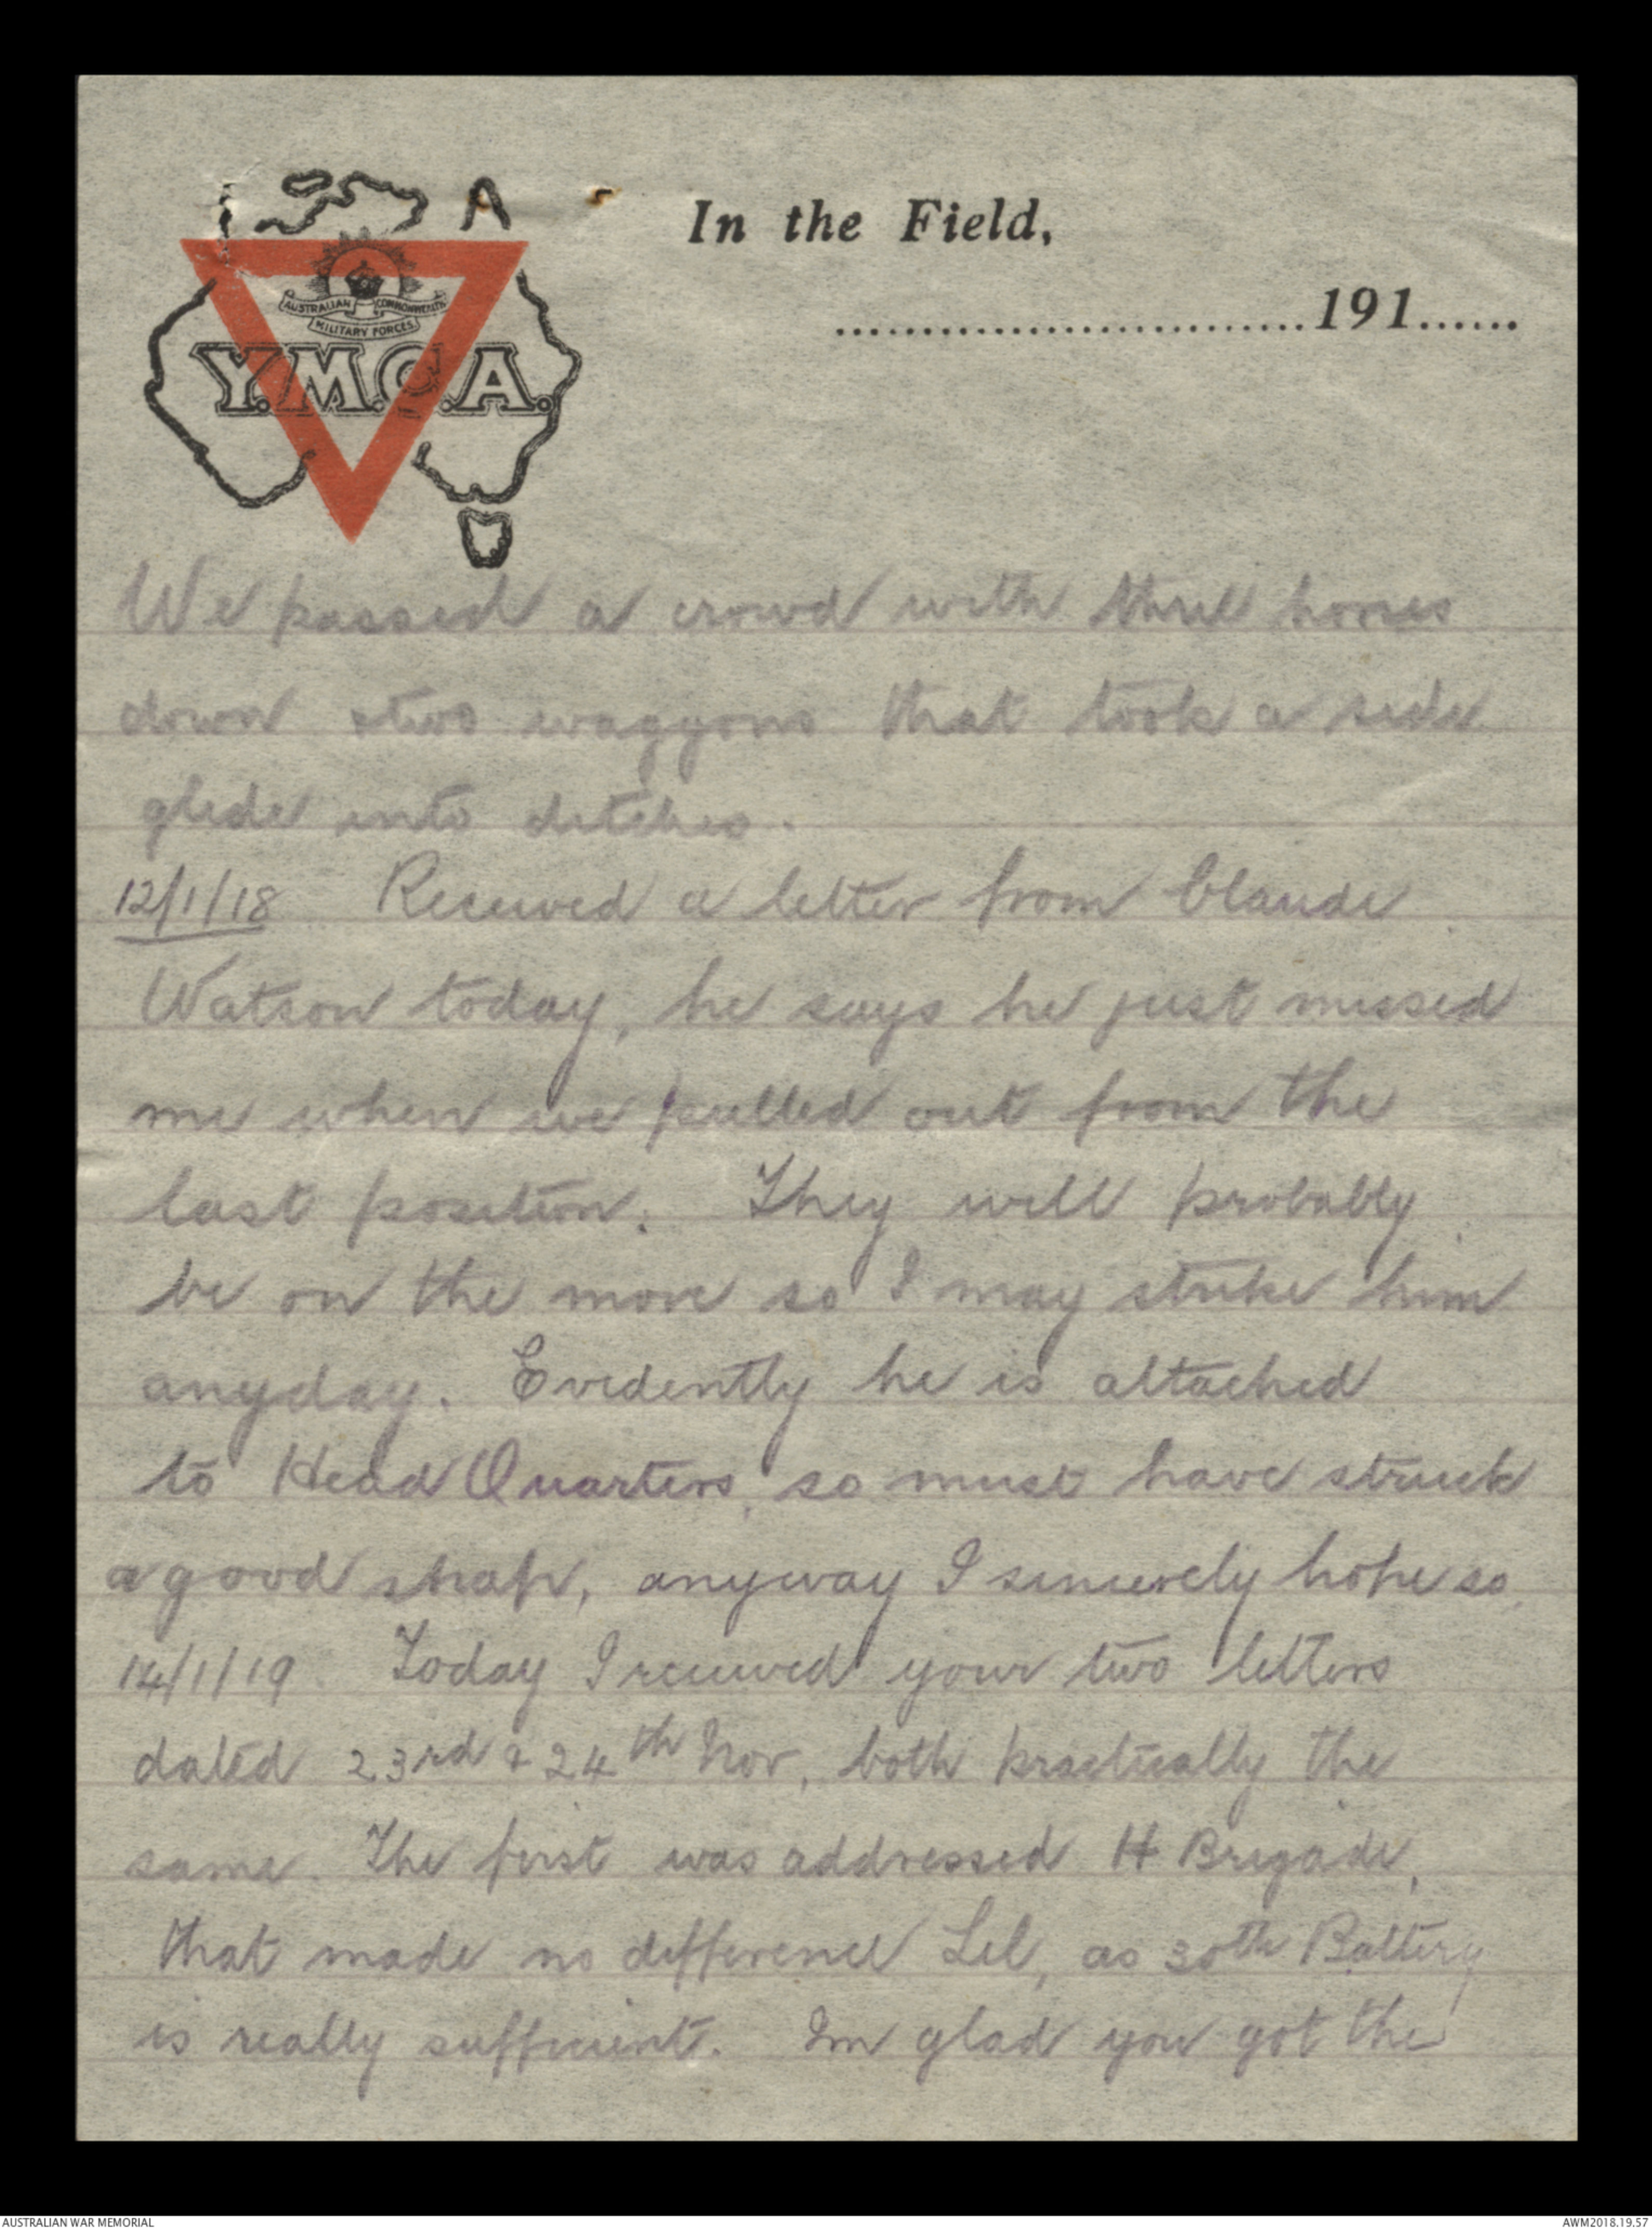 In the Field,
...........................191......
AUSTRALIAN COMMONWEALTH
MILITARY FORCES
Y.M.C.A.
We passed a crowd with three horses
down & two waggons that took a side
glide into ditches.
12/1/18 Received a letter from Claude
Watson today, he says he just missed
me when we pulled out from the
last position. They will probably
be on the move so I may strike him
anyday. Evidently he is attached
to Head Quarters, so must have struck
a good snap, anyway I sincerely hope so.
14/1/19. Today I received your two letters
dated 23rd & 24th Nov, both practically the
same. The first was addressed H Brigade,
that made no difference Lil, as 30th Battery
is really sufficient. Im glad you got the
AUSTRALIAN WAR MEMORIAL
AWM2018.19.57